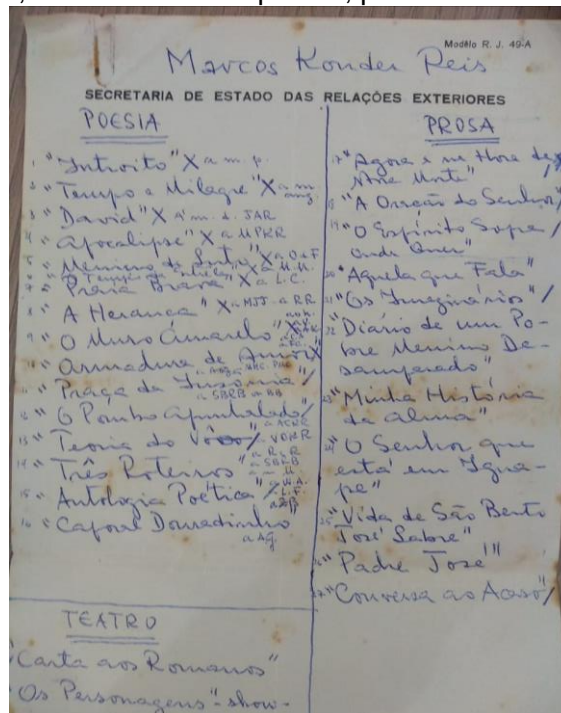 Modêlo R. J. 49-A
Marcos Konder Reis
SECRETARIA DE ESTADO DAS RELAÇÕES EXTERIORES
POESIA
1 "Introito" X a m. p.
2 "Tempo e Milagre" X a m.
3 "David" X a m. d. JAR
4 "Apocalipse" X a MPKR
5 "Menino de Luto" X a O e F
6 X a M.M.
7 "Praia Brava" X a L.C.
8 "A Herança" X a MJJ. a RR
9 "O Muro Amarelo" X
10 "Armadura de Amor" X
11 "Praça da Insônia" /
a SBRB a BB
12 "O Pombo Apunhalado" /
13 "Teoria do Vôo" /
14 "Três Roteiros"
15 "Antologia Poética" /
16 "Caporal Douradinho"
a AG
TEATRO
"Carta aos Romanos"
"Os Personagens" - show -
PROSA
17 "Agora e na Hora de
Nossa Morte"
18 "A Oração do Senhor" /
19 "O Espírito Sopra /
onde Quer"
20 "Aquela que Fala"
21 "Os Imaginários" /
22 "Diário de um Po-
bre Menino De-
samparado"
23 "Minha História
da Alma"
24 "O Senhor que
está em Igua-
pe"
25 "Vida de São Bento
José Labre"
26 "Padre José"
27 "Conversa ao Acaso" /